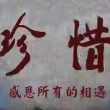 珍惜
感恩所有的相遇